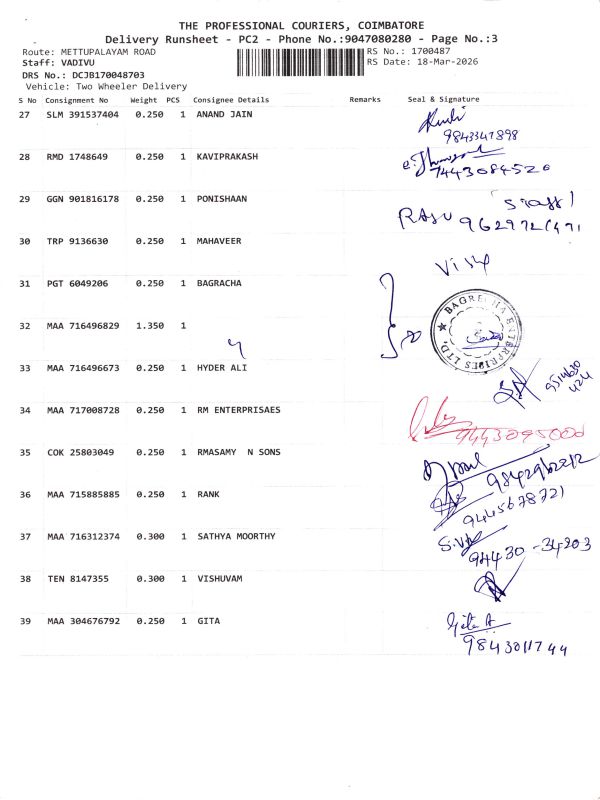 THE PROFESSIONAL COURIERS, COIMBATORE
Delivery Runsheet - PC2 - Phone No.:9047080280 - Page No.:3
Route: METTUPALAYAM ROAD
RS No.: 1700487
Staff: VADIVU
RS Date: 18-Mar-2026
DRS No.: DCJB170048703
Vehicle: Two Wheeler Delivery
S No Consignment No Weight PCS Consignee Details Remarks Seal & Signature
27 SLM 391537404 0.250 1 ANAND JAIN
9843341898
28 RMD 1748649 0.250 1 KAVIPRAKASH
7443084526
29 GGN 901816178 0.250 1 PONISHAAN
RAJU
30 TRP 9136630 0.250 1 MAHAVEER
31 PGT 6049206 0.250 1 BAGRACHA
BAGRECHA ENTERPRISES LTD.
32 MAA 716496829 1.350 1
33 MAA 716496673 0.250 1 HYDER ALI
34 MAA 717008728 0.250 1 RM ENTERPRISAES
35 COK 25803049 0.250 1 RMASAMY N SONS
36 MAA 715885885 0.250 1 RANK
9445678721
37 MAA 716312374 0.300 1 SATHYA MOORTHY
94430-34203
38 TEN 8147355 0.300 1 VISHUVAM
39 MAA 304676792 0.250 1 GITA
Gita A
9843011744